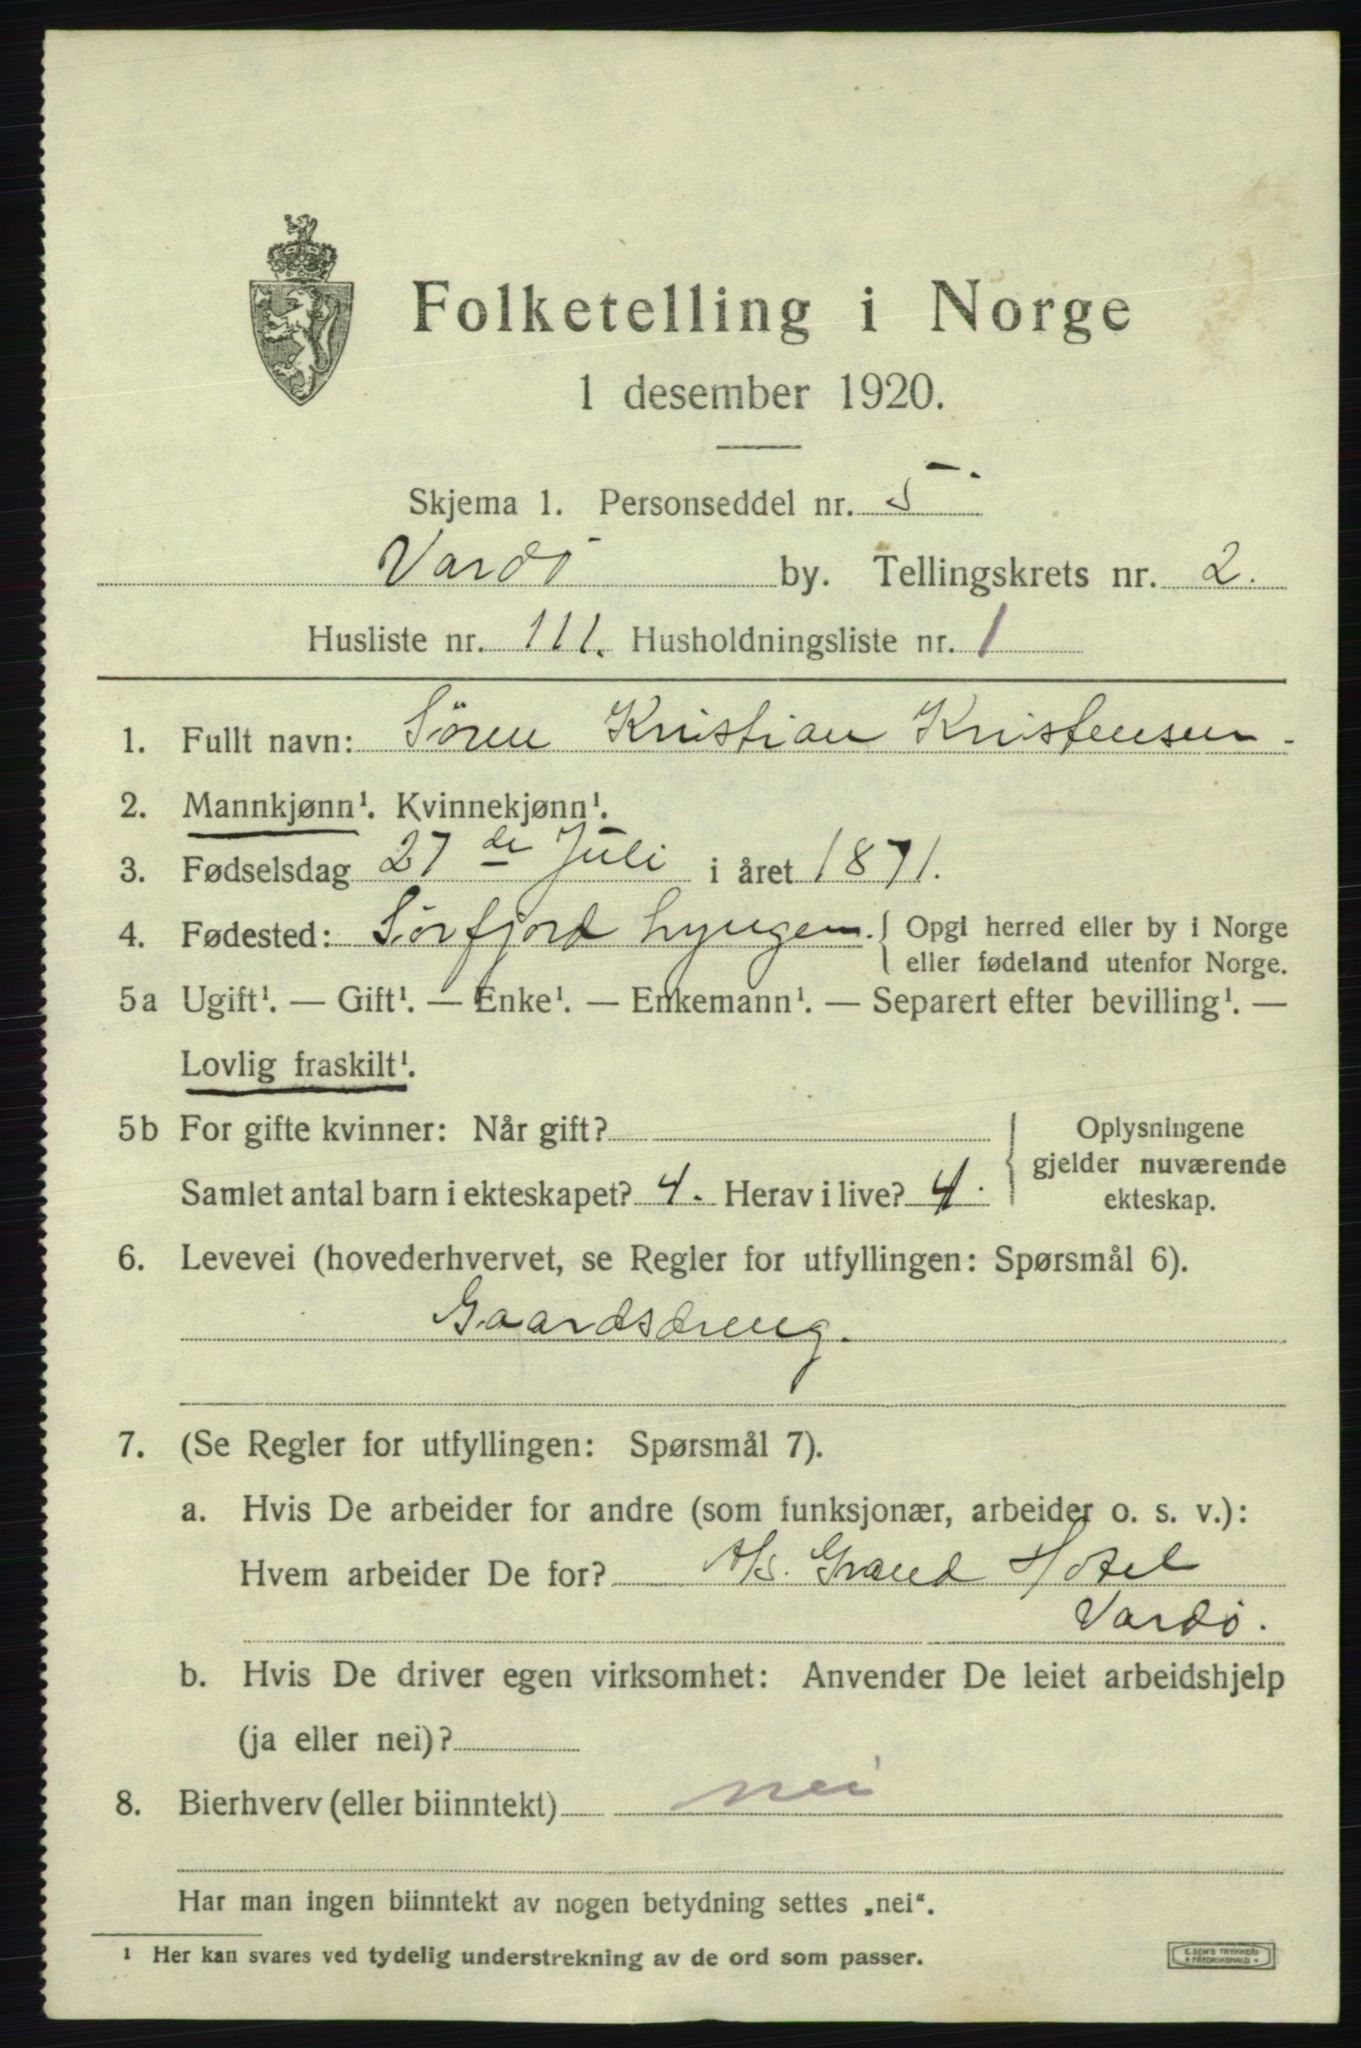 Folketelling i Norge
1 desember 1920.
Skjema 1. Personseddel nr. 5
Vardö by. Tellingskrets nr. 2.
Husliste nr. 111. Husholdningsliste nr. 1
1. Fullt navn: Sören Kristian Kristensen.
2. Mannkjønn¹. Kvinnekjønn¹.
3. Fødselsdag 27 de Juli i året 1871.
4. Fødested: Sörfjord Lyngen. { Opgi herred eller by i Norge
eller fødeland utenfor Norge.
5a Ugift¹. — Gift¹. — Enke¹. — Enkemann¹. — Separert efter bevilling¹. —
Lovlig fraskilt¹.
5b For gifte kvinner: Når gift? Oplysningene
gjelder nuværende
Samlet antal barn i ekteskapet? 4. Herav i live? 4. ekteskap.
6. Levevei (hovederhvervet, se Regler for utfyllingen: Spørsmål 6).
Gaardsdreng.
7. (Se Regler for utfyllingen: Spørsmål 7).
a. Hvis De arbeider for andre (som funksjonær, arbeider o. s. v.):
Hvem arbeider De for? A/S. Grand Hotel
Vardö.
b. Hvis De driver egen virksomhet: Anvender De leiet arbeidshjelp
(ja eller nei)?
8. Bierhverv (eller biinntekt) nei
Har man ingen biinntekt av nogen betydning settes „nei“.
¹ Her kan svares ved tydelig understrekning av de ord som passer.
E. SEM'S TRYKKERI
* FREDRIKSHALD *